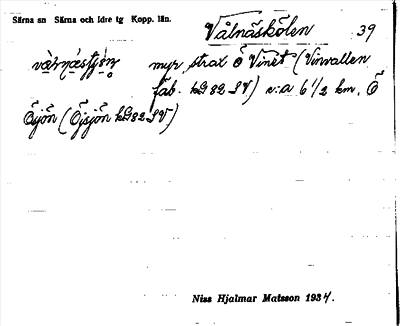 Särna sn Särna och Idre tg Kopp. län.
Vålnäskölen 39
myr strax Ö Vinst (Vinvallen
fäb. kG 82 SV) c:a 6 1/2 km. Ö
Öjön (Öjsjön kG 82 SV)
Niss Hjalmar Matsson 1934.